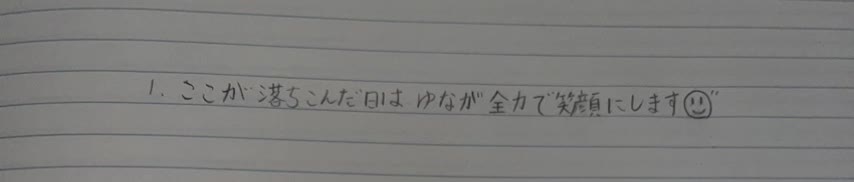 1. ここが落ちこんだ日は ゆなが全力で笑顔にします☺"